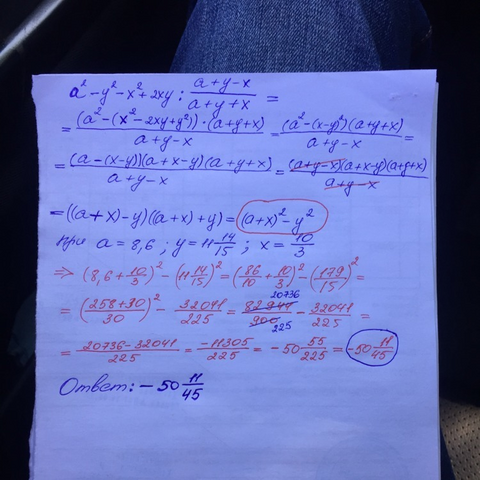 a² - y² - x² + 2xy : (a+y-x)/(a+y+x) =
= ((a² - (x² - 2xy + y²)) · (a+y+x))/(a+y-x) = ((a² - (x-y)²)(a+y+x))/(a+y-x) =
= ((a-(x-y))(a+x-y)(a+y+x))/(a+y-x) = ((a+y-x)(a+x-y)(a+y+x))/(a+y-x)
= ((a+x)-y)((a+x)+y) = (a+x)² - y²
при a = 8,6 ; y = 11 14/15 ; x = 10/3
⇒ (8,6 + 10/3)² - (11 14/15)² = (86/10 + 10/3)² - (179/15)² =
= ((258+30)/30)² - 32041/225 = 82944/900 20736/225 - 32041/225 =
= (20736-32041)/225 = -11305/225 = -50 55/225 = -50 11/45
Ответ: -50 11/45